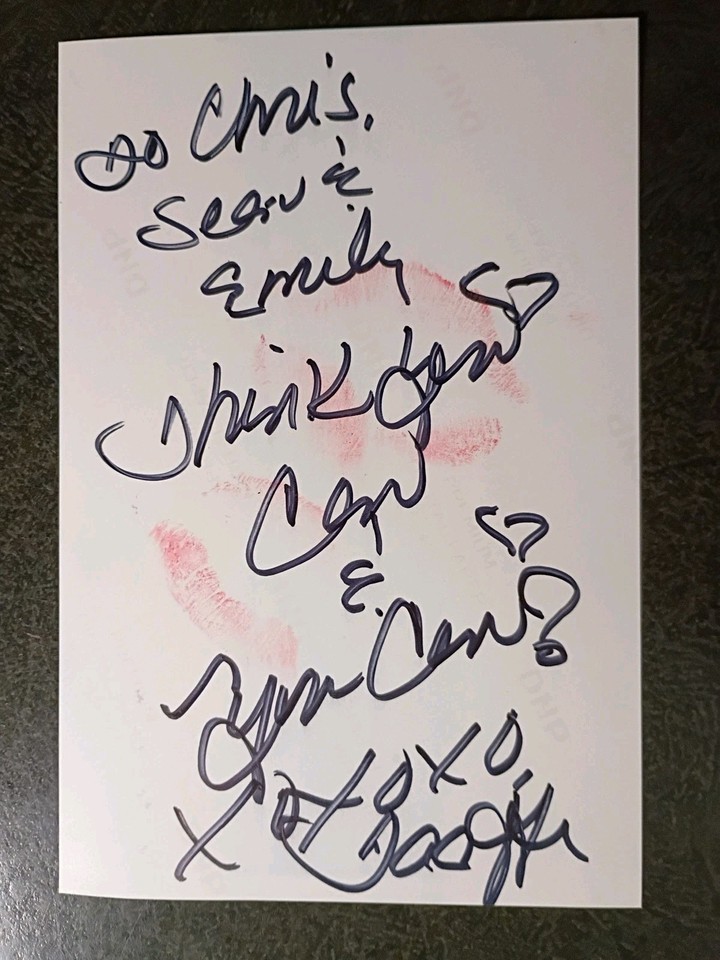 To Chris,
Sean &
Emily
Think you
Can
&
You Can!
XOXOXO